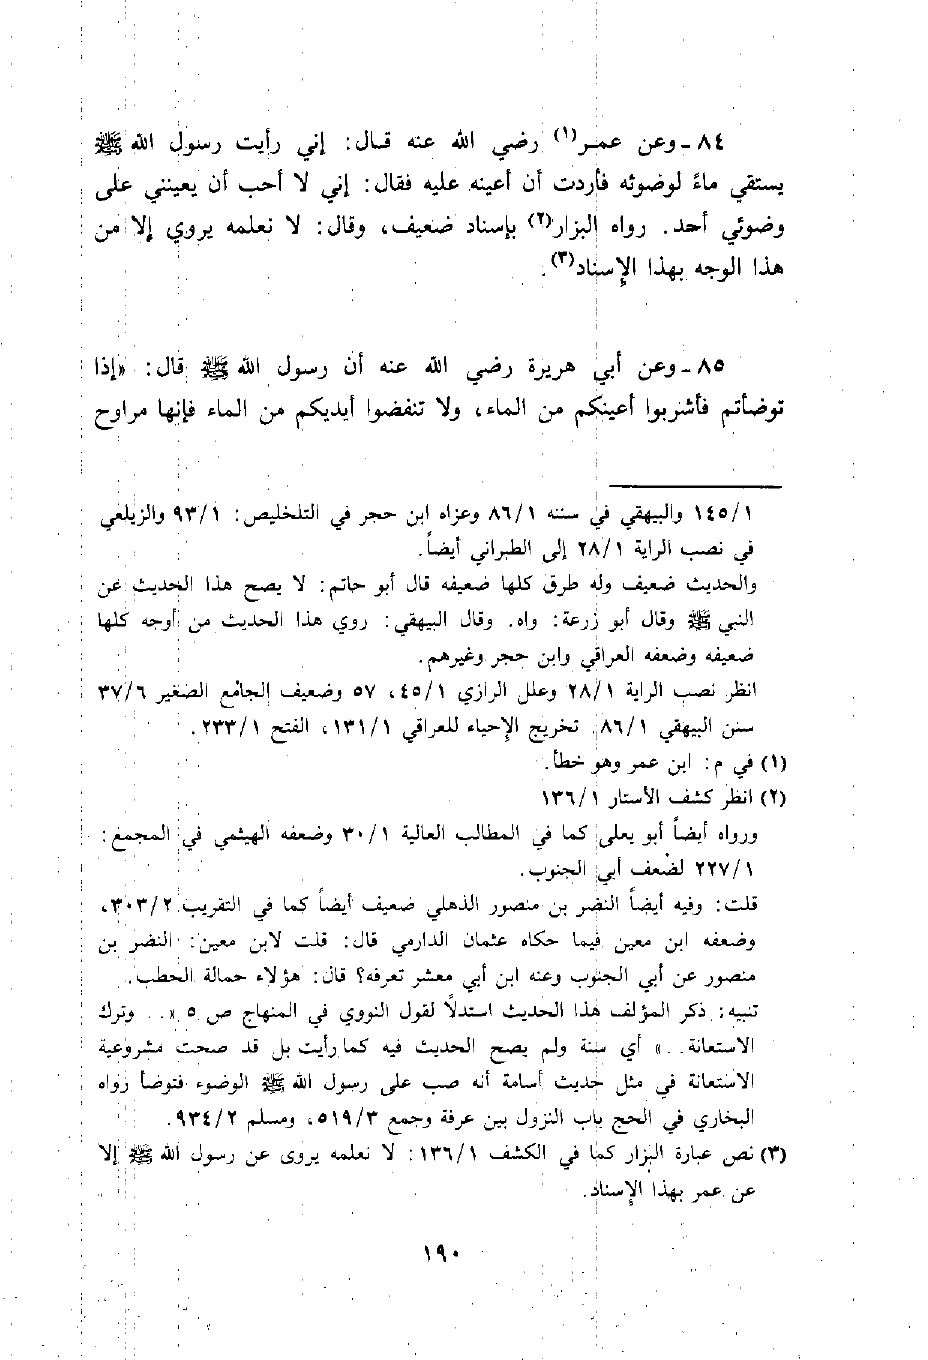 ٨٤ - وعن عمر(١) رضي الله عنه قال: إني رأيت رسول الله ﷺ
يستقي ماءً لوضوئه فأردت أن أعينه عليه فقال: إني لا أحب أن يعينني على
وضوئي أحد. رواه البزار(٢) بإسناد ضعيف، وقال: لا نعلمه يروي إلا من
هذا الوجه بهذا الإسناد(٣).
٨٥ - وعن أبي هريرة رضي الله عنه أن رسول الله ﷺ قال: «إذا
توضأتم فأشربوا أعينكم من الماء، ولا تنفضوا أيديكم من الماء فإنها مراوح
١٤٥/١ والبيهقي في سننه ٨٦/١ وعزاه ابن حجر في التلخليص: ٩٣/١ والزيلعي
في نصب الراية ٢٨/١ إلى الطبراني أيضاً.
والحديث ضعيف وله طرق كلها ضعيفه قال أبو حاتم: لا يصح هذا الحديث عن
النبي ﷺ وقال أبو زرعة: واه. وقال البيهقي: روي هذا الحديث من أوجه كلها
ضعيفه وضعفه العراقي وابن حجر وغيرهم.
انظر نصب الراية ٢٨/١ وعلل الرازي ٤٥/١، ٥٧ وضعيف الجامع الصغير ٣٧/٦
سنن البيهقي ٨٦/١. تخريج الإحياء للعراقي ١٣١/١، الفتح ٢٣٣/١.
(١) في م: ابن عمر وهو خطأ.
(٢) انظر كشف الأستار ١٣٦/١
ورواه أيضاً أبو يعلى كما في المطالب العالية ٣٠/١ وضعفه الهيثمي في المجمع:
٢٢٧/١ لضعف أبي الجنوب.
قلت: وفيه أيضاً النضر بن منصور الذهلي ضعيف أيضاً كما في التقريب ٣٠٣/٢،
وضعفه ابن معين فيما حكاه عثمان الدارمي قال: قلت لابن معين: النضر بن
منصور عن أبي الجنوب وعنه ابن أبي معشر تعرفه؟ قال: هؤلاء حمالة الحطب.
تنبيه: ذكر المؤلف هذا الحديث استدلاً لقول النووي في المنهاج ص ٥ «.. وترك
الاستعانة..» أي سنة ولم يصح الحديث فيه كما رأيت بل قد صحت مشروعية
الاستعانة في مثل حديث أسامة أنه صب على رسول الله ﷺ الوضوء فتوضأ رواه
البخاري في الحج باب النزول بين عرفة وجمع ٥١٩/٣، ومسلم ٩٣٤/٢.
(٣) نص عبارة البزار كما في الكشف ١٣٦/١: لا نعلمه يروى عن رسول الله ﷺ إلا
عن عمر بهذا الإسناد.
١٩٠